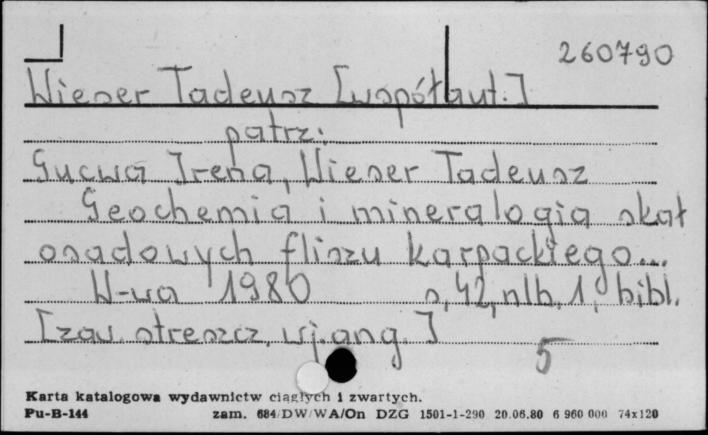 260790
Wieser Tadeusz [współaut.]
patrz:
Gucwa Irena, Wieser Tadeusz
Geochemia i mineralogia skał
osadowych fliszu karpackiego...
W-wa 1980 s. 42, nlb. 1, bibl.
[zaw. streszcz. w j. ang.]
5
Karta katalogowa wydawnictw ciągłych i zwartych.
Pu-B-144 zam. 684/DW/WA/On DZG 1501-1-290 20.06.80 6 960 000 74x120